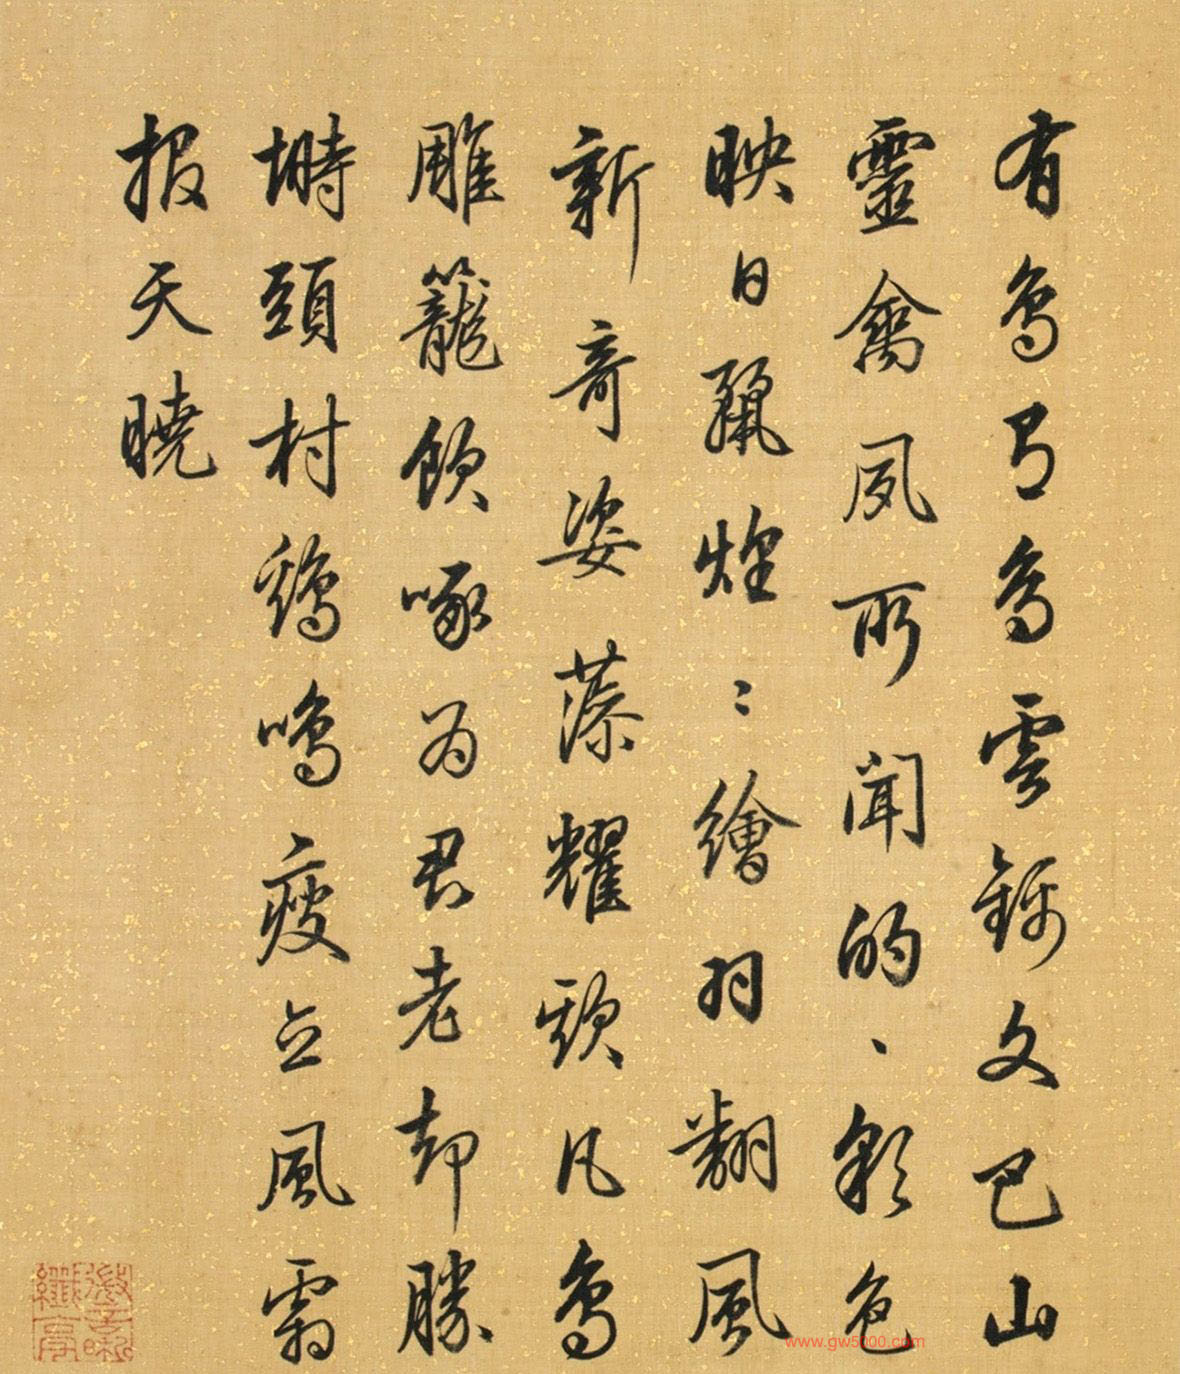 有鳥有鳥雲錦文巴山
靈禽夙所聞的、彩色
映日麗煌〻繪羽翻風
新奇姿藻耀頌凡鳥
雕籠飲啄為君老却勝
塒頭村鷄鳴瘦立風霜
報天曉
www.gw5000.com